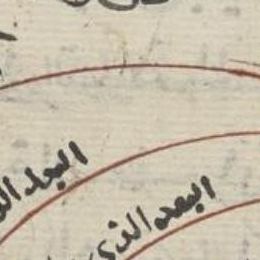 البعد ال
البعد الذي